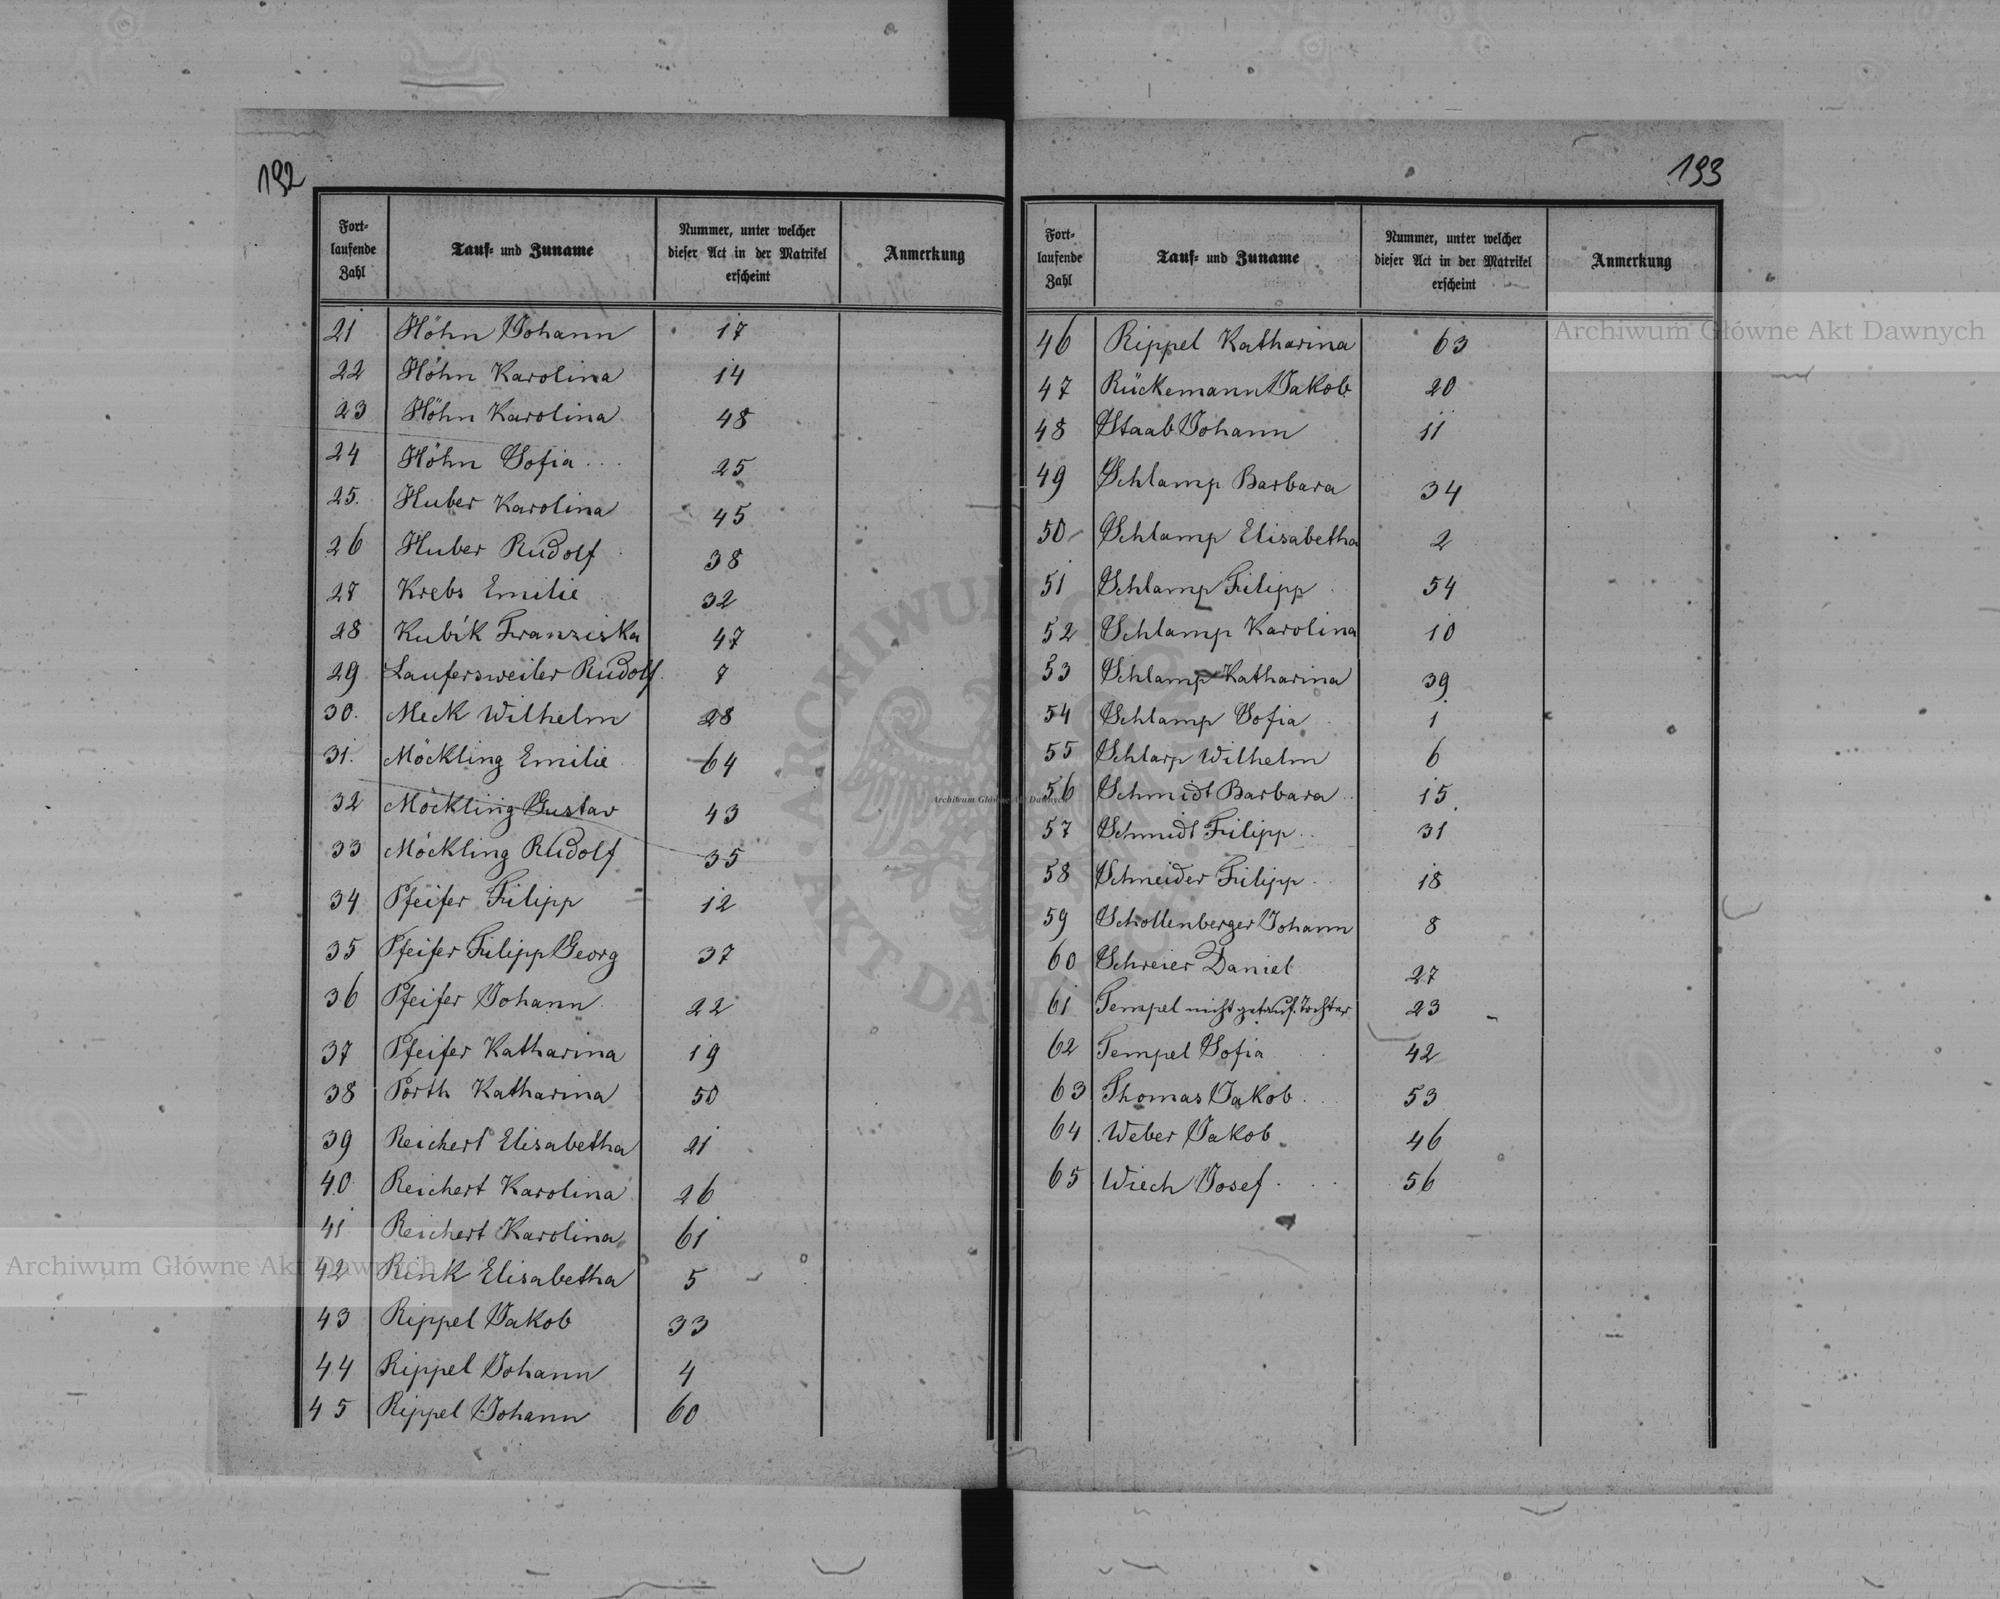 192
Fort-
laufende
Zahl
Tauf- und Zuname
Nummer, unter welcher
dieser Act in der Matrikel
erscheint
Anmerkung
21 Höhn Johann 17
22 Höhn Karolina 14
23 Höhn Karolina 48
24 Höhn Sofia 25
25. Huber Karolina 45
26 Huber Rudolf 38
27 Krebs Emilie 32
28 Kubik Franziska 47
29 Laufersweiler Rudolf 7
30. Meck Wilhelm 28
31. Möckling Emilie 64
32 Möckling Gustav 43
33 Möckling Rudolf 35
34 Pfeifer Filipp 12
35 Pfeifer Filipp Georg 37
36 Pfeifer Johann 22
37 Pfeifer Katharina 19
38 Porth Katharina 50
39 Reichert Elisabetha 21
40 Reichert Karolina 26
41 Reichert Karolina 61
42 Rink Elisabetha 5
43 Rippel Jakob 33
44 Rippel Johann 4
45 Rippel Johann 60
193
Fort-
laufende
Zahl
Tauf- und Zuname
Nummer, unter welcher
dieser Act in der Matrikel
erscheint
Anmerkung
46 Rippel Katharina 63
47 Rückemann Jakob 20
48 Staab Johann 11
49 Schlamp Barbara 34
50 Schlamp Elisabetha 2
51 Schlamp Filipp 54
52 Schlamp Karolina 10
53 Schlamp Katharina 39
54 Schlamp Sofia 1
55 Schlarp Wilhelm 6
56 Schmidt Barbara 15
57 Schmidt Filipp 31
58 Schneider Filipp 18
59 Schollenberger Johann 8
60 Schreier Daniel 27
61 Tempel nicht getauf. Tochter 23
62 Tempel Sofia 42
63 Thomas Jakob 53
64 Weber Jakob 46
65 Wiech Josef 56
Archiwum Główne Akt Dawnych
Archiwum Główne Akt Dawnych
Archiwum Główne Akt Dawnych